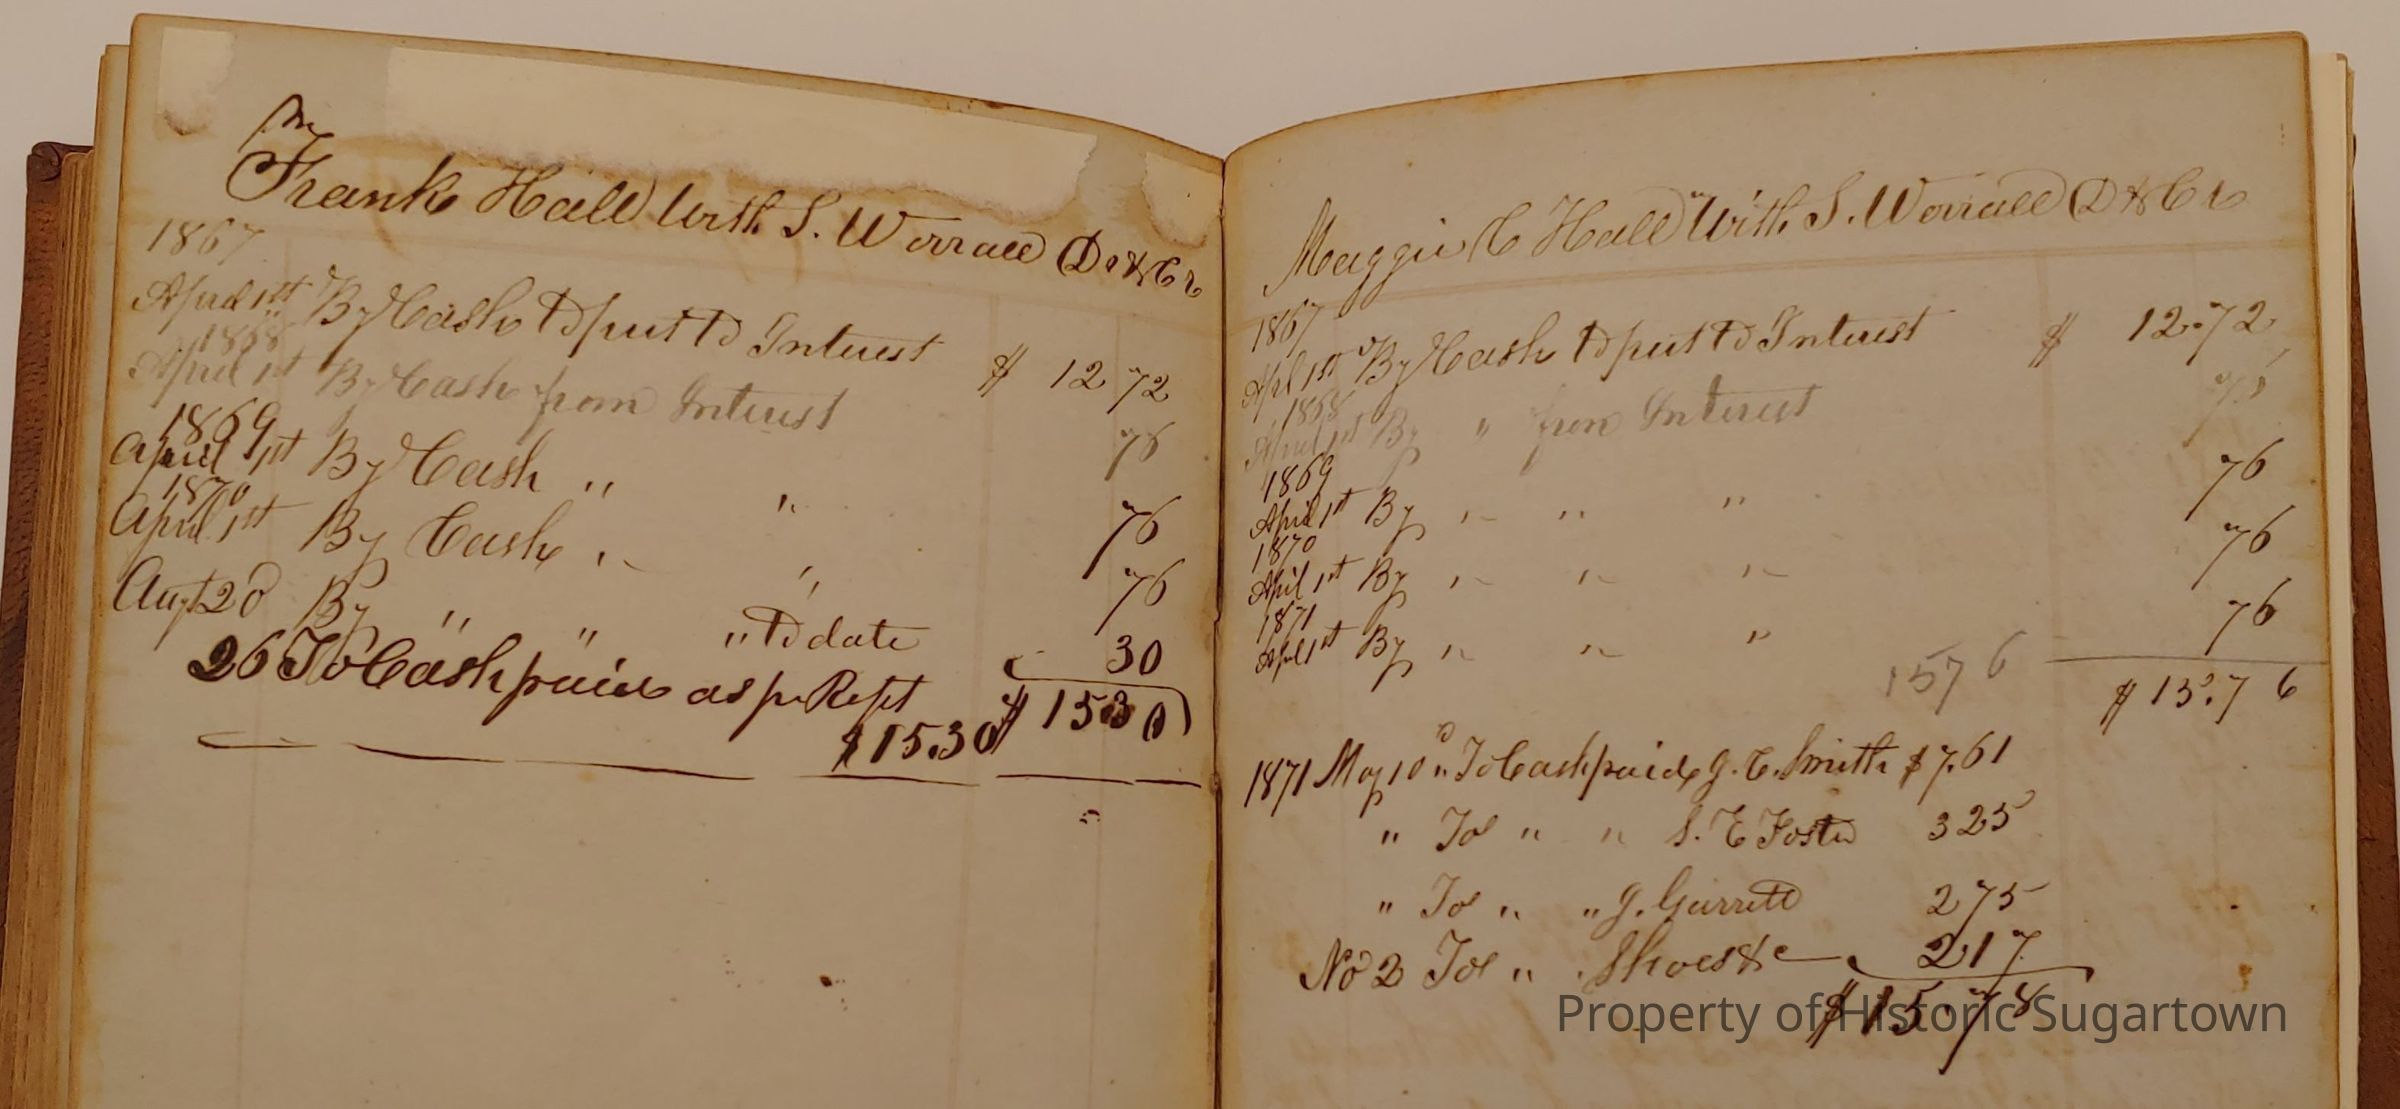 Frank Hall With S. Worrall Dr & Cr
1867
April 1st By Cash to put to Interest $ 12 72
1868
April 1st By Cash from Interest 76
1869
April 1st By Cash " " 76
1870
April 1st By Cash " " 76
Augt 20 By " " " to date 30
$ 15 30
26 To Cash paid as pr Rept
$15.30
Maggie C Hall With S. Worrall D & Cr
1867
Apl 1st By Cash to put to Interest $ 12.72
1868
April 1st By " from Interest 76
1869
April 1st By " " " 76
1870
April 1st By " " " 76
1871
Apl 1st By " " " 76
1576
$ 15.76
1871 May 10 " To Cash paid J. C. Smith $7.61
" To " " S. E Foster 325
" To " " J. Garrett 275
No 2 To " Shoes &c 217
$15.78
Property of Historic Sugartown